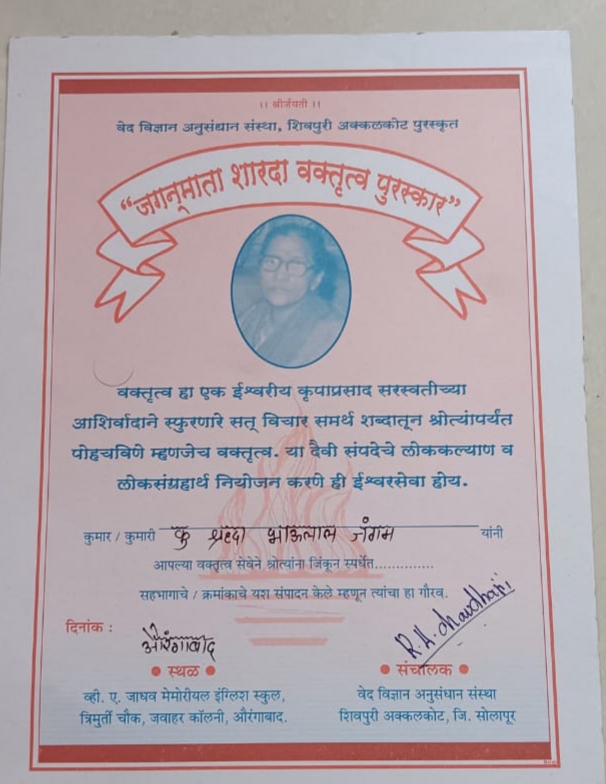 ।। श्रीर्जयती ।।
वेद विज्ञान अनुसंधान संस्था, शिवपुरी अक्कलकोट पुरस्कृत
“जगन्माता शारदा वक्तृत्व पुरस्कार”
वक्तृत्व हा एक ईश्वरीय कृपाप्रसाद सरस्वतीच्या
आशिर्वादाने स्फुरणारे सत् विचार समर्थ शब्दातून श्रोत्यांपर्यंत
पोहचविणे म्हणजेच वक्तृत्व. या दैवी संपदेचे लोककल्याण व
लोकसंग्रहार्थ नियोजन करणे ही ईश्वरसेवा होय.
कुमार / कुमारी कु श्रद्दा भाऊलाल जंगम यांनी
आपल्या वक्तृत्व सेवेने श्रोत्यांना जिंकून स्पर्धेत..............
सहभागाचे / क्रमांकाचे यश संपादन केले म्हणून त्यांचा हा गौरव.
दिनांक :
औरंगाबाद
● स्थळ ●
व्ही. ए. जाधव मेमोरीयल इंग्लिश स्कुल,
त्रिमुर्ती चौक, जवाहर कॉलनी, औरंगाबाद.
● संचालक ●
वेद विज्ञान अनुसंधान संस्था
शिवपुरी अक्कलकोट, जि. सोलापूर